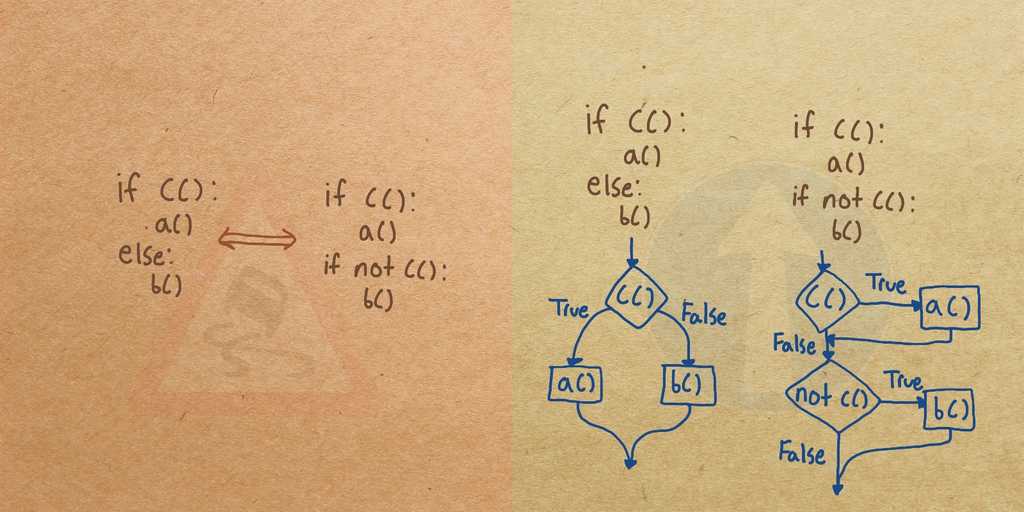 if C():
a()
else:
b()
if C():
a()
if not C():
b()
if C():
a()
else:
b()
C()
True
False
a()
b()
if C():
a()
if not C():
b()
C()
True
a()
False
not C()
True
b()
False